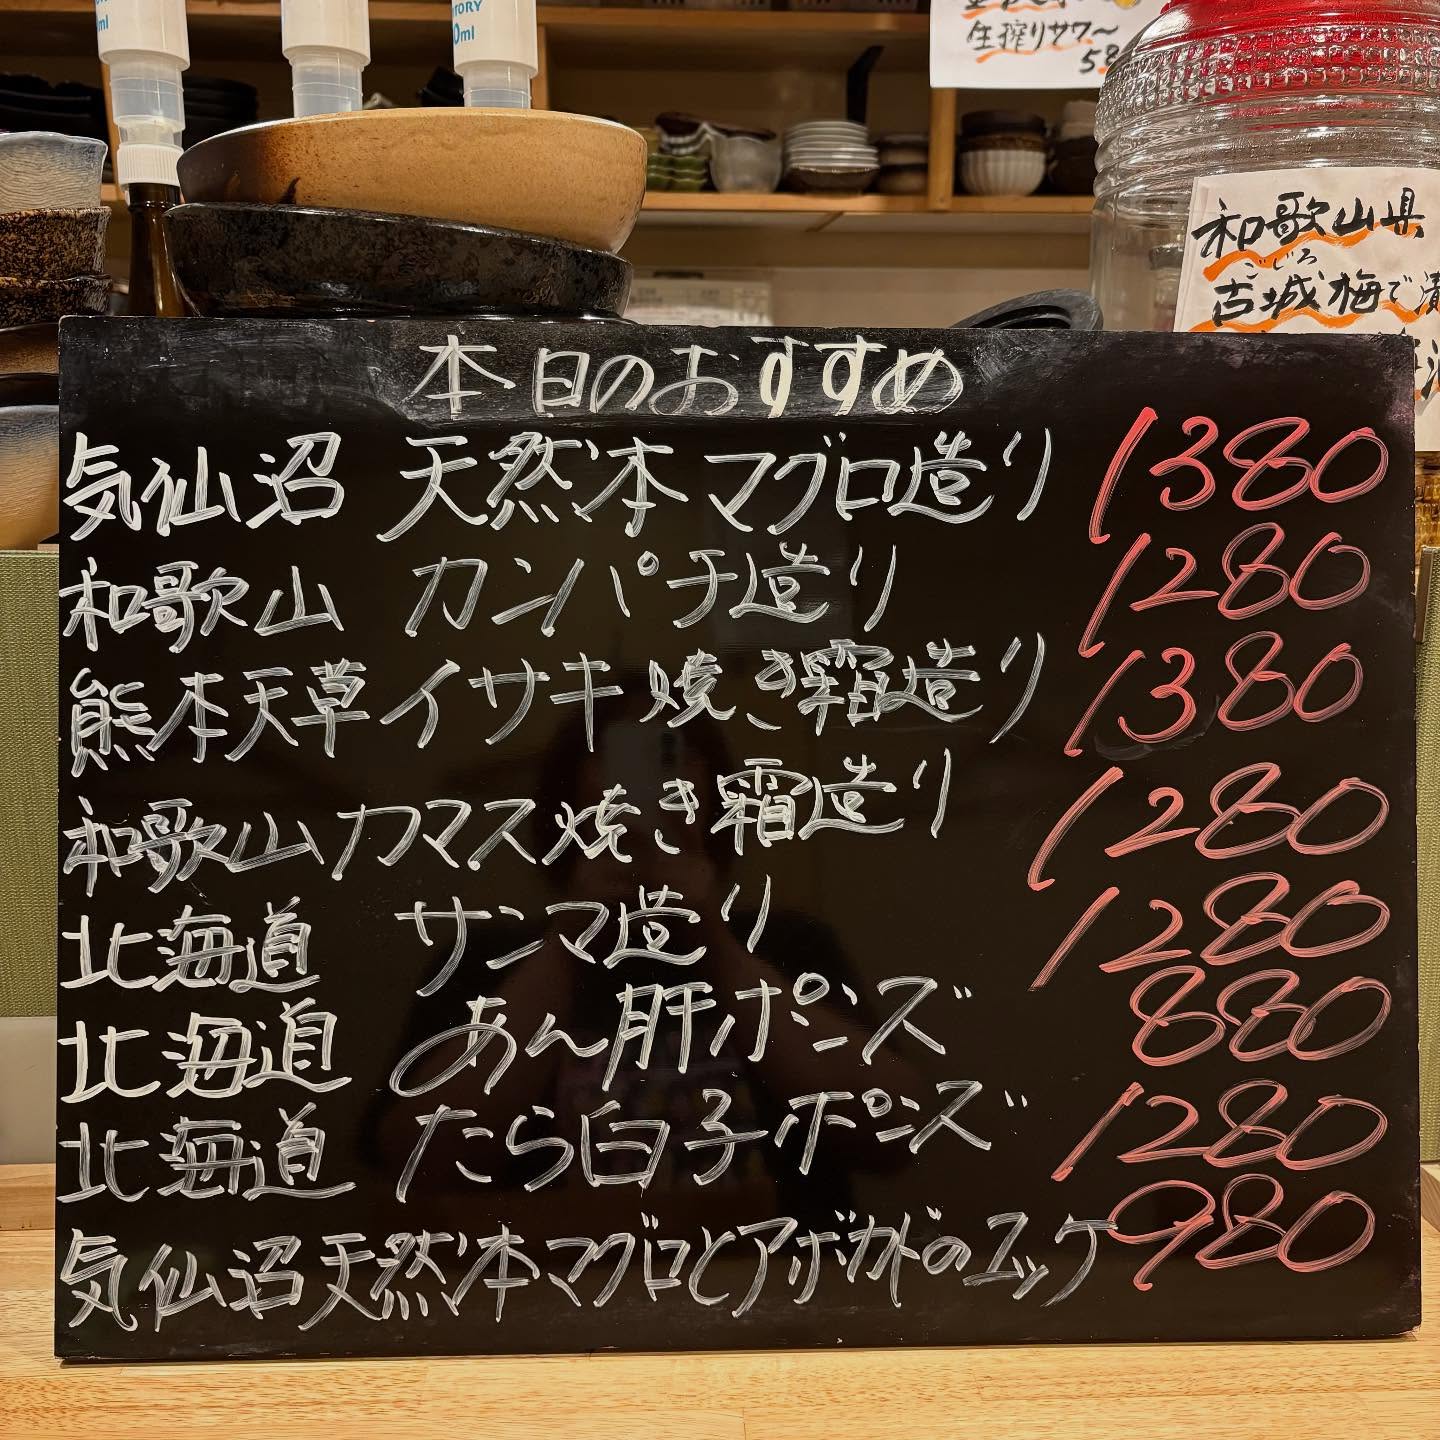 TORY
ml
0ml
生搾りサワー
58
和歌山県
ごじろ
古城梅で漬
本日のおすすめ
気仙沼 天然本マグロ造り 1380
和歌山 カンパチ造り 1280
熊本天草イサキ焼き霜造り 1380
和歌山カマス焼き霜造り 1280
北海道 サンマ造り 1280
北海道 あん肝ポンズ 880
北海道 たら白子ポンズ 1280
気仙沼天然本マグロとアボカドのユッケ 980